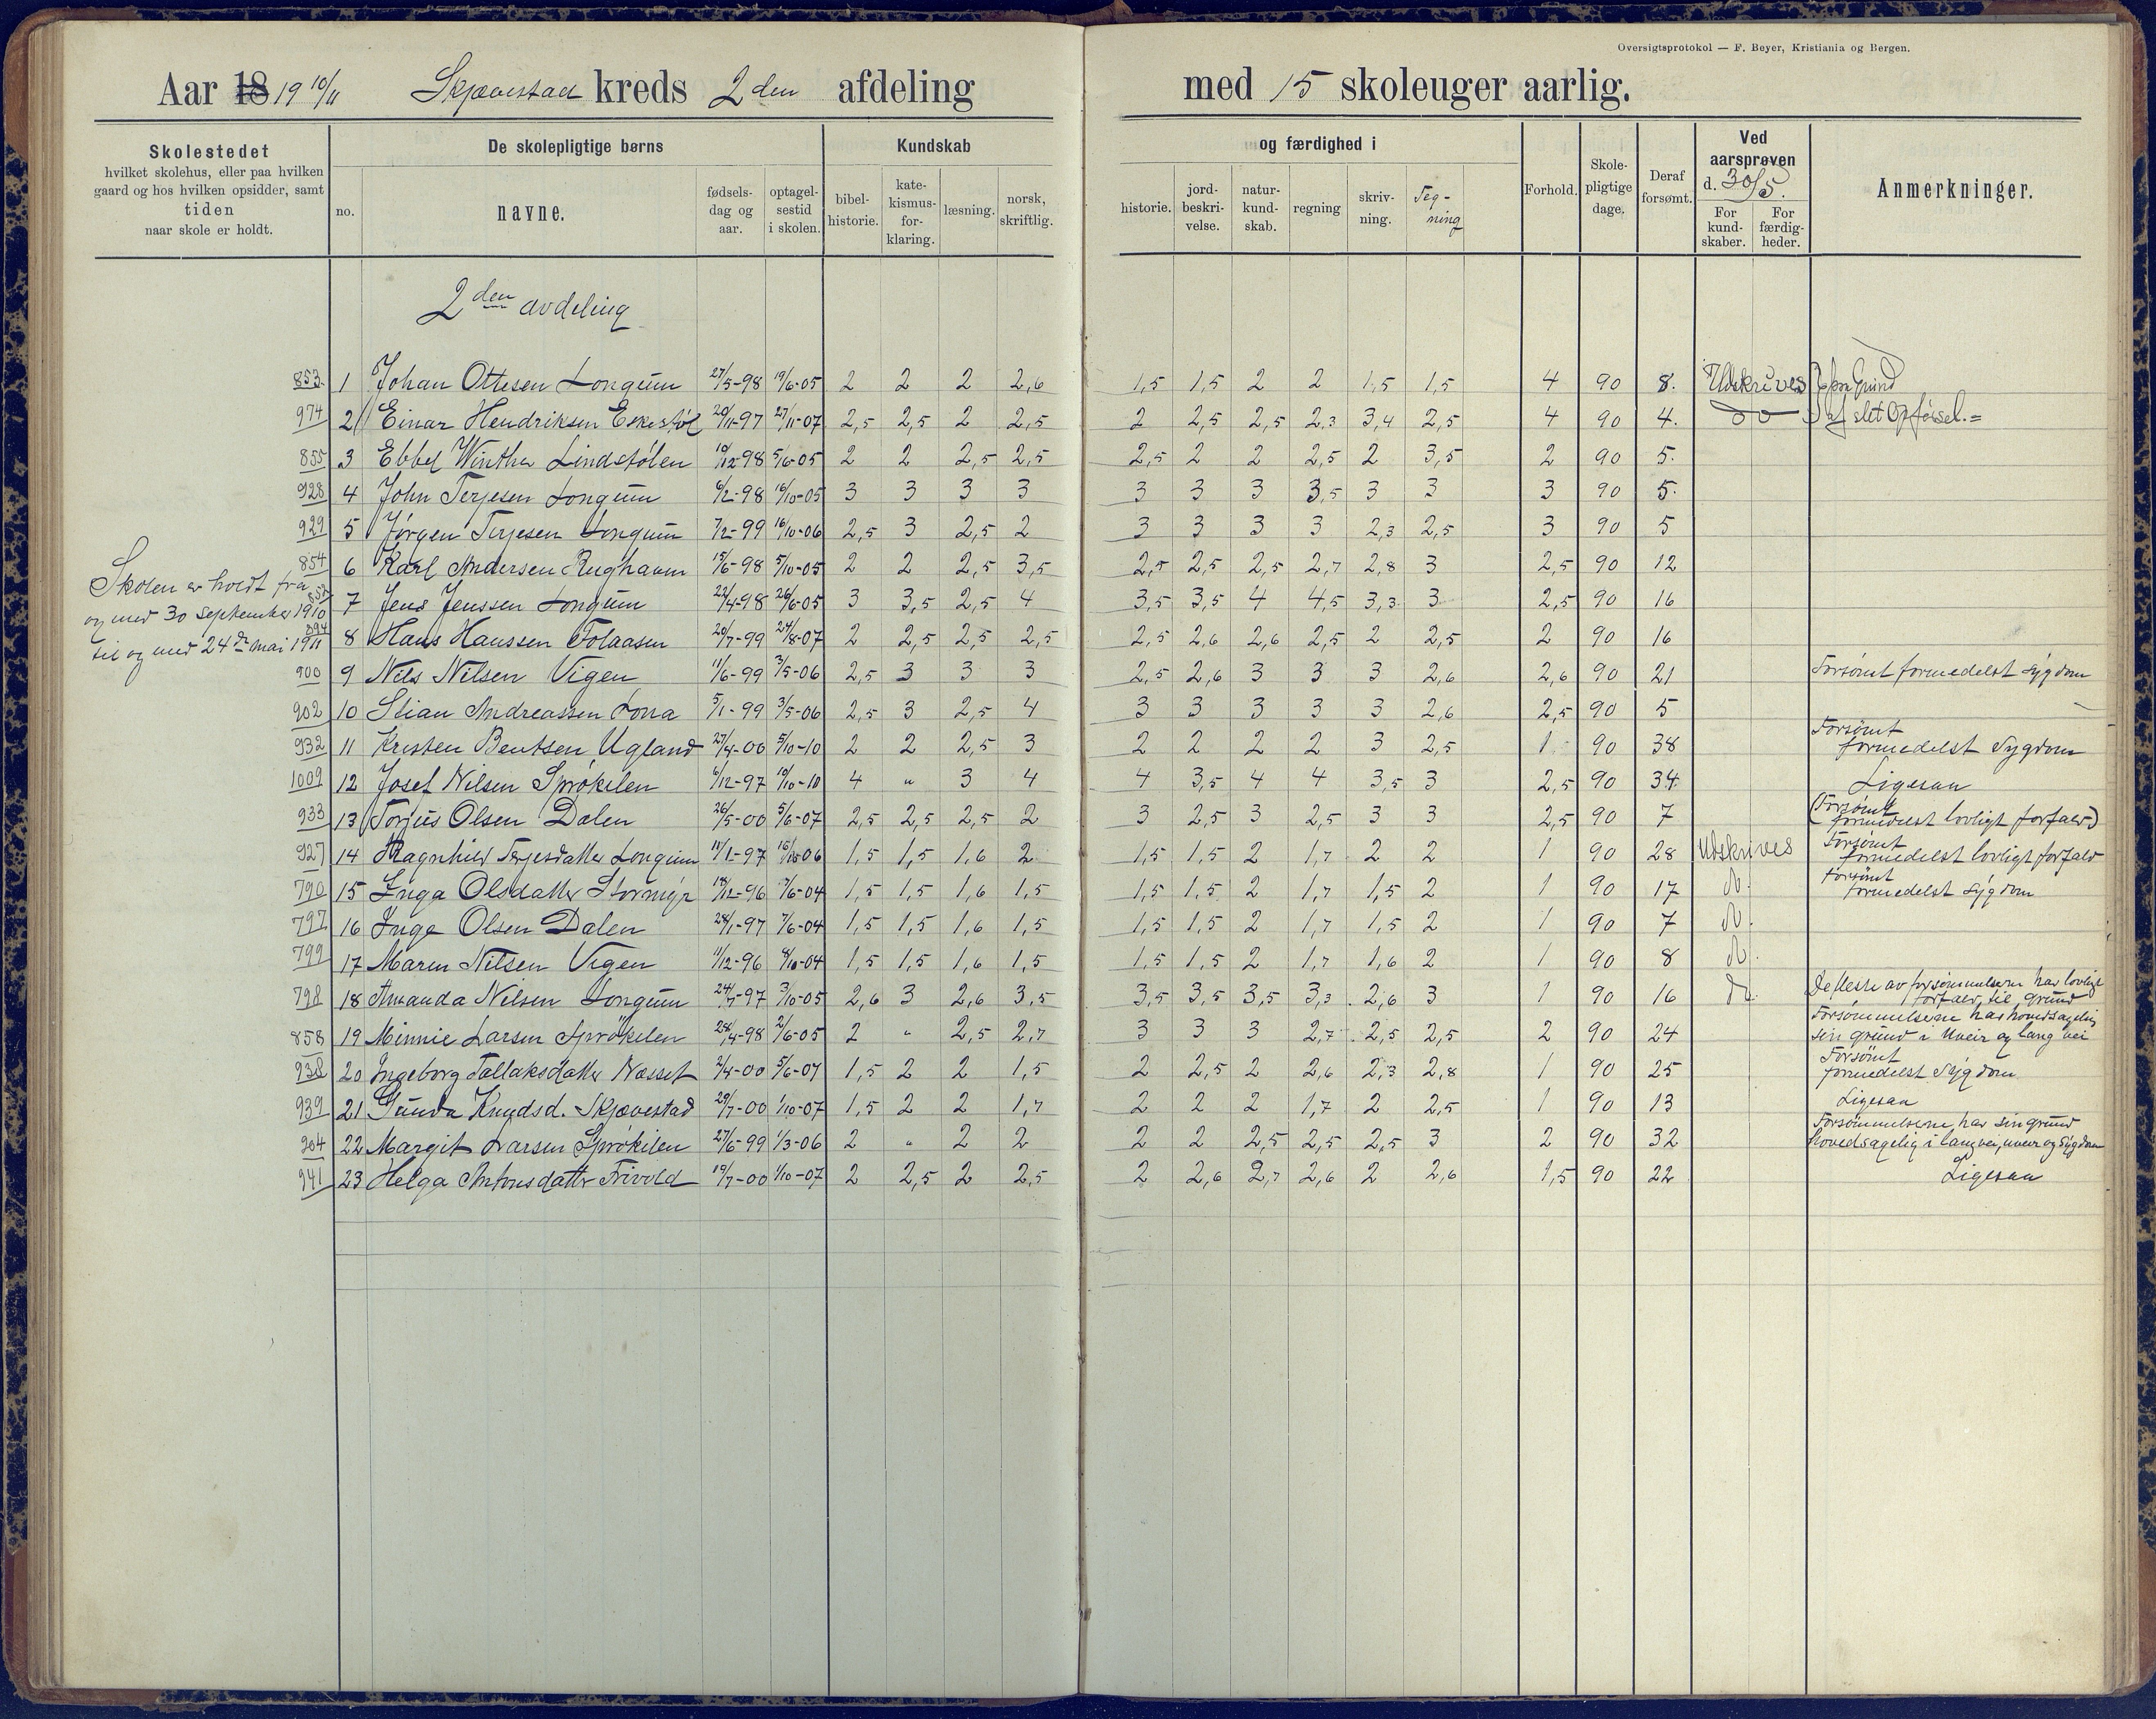 Oversigtsprotokol — F. Beyer, Kristiania og Bergen.
Aar 18 19 10/11 Skjævestad kreds 2 den afdeling med 15 skoleuger aarlig.
Skolestedet
hvilket skolehus, eller paa hvilken
gaard og hos hvilken opsidder, samt
tiden
naar skole er holdt.
De skolepligtige børns
no.
navne.
fødsels-
dag og
aar.
optagel-
sestid
i skolen.
Kundskab
bibel-
historie.
kate-
kismus-
for-
klaring.
læsning.
norsk,
skriftlig.
og færdighed i
historie.
jord-
beskri-
velse.
natur-
kund-
skab.
regning
skriv-
ning.
Teg-
ning
Forhold.
Skole-
pligtige
dage.
Deraf
forsømt.
Ved
aarsprøven
d. 30/5.
For
kund-
skaber.
For
færdig-
heder.
Anmerkninger.
2 den avdeling
Skolen er holdt fra
og med 30 September 1910
til og med 24 de mai 1911
853 1 Johan Ottesen Longum 27/5-98 19/6-05 2 2 2 2,6 1,5 1,5 2 2 1,5 1,5 4 90 8. Udskrives } paa Grund
974 2 Einar Hendriksen Eskestøl 20/11-97 27/11-07 2,5 2,5 2 2,5 2 2,5 2,5 2,3 3,4 2,5 4 90 4. do af slet Opførsel.=
855 3 Ebbel Winther Lindstølen 10/12-98 5/6-05 2 2 2,5 2,5 2,5 2 2 2,5 2 3,5 2 90 5.
928 4 John Terjesen Longum 6/2-98 16/10-05 3 3 3 3 3 3 3 3,5 3 3 3 90 5.
929 5 Jørgen Terjesen Longum 7/2-99 16/10-06 2,5 3 2,5 2 3 3 3 3 2,3 2,5 3 90 5
854 6 Karl Andersen Rughaven 15/6-98 5/10-05 2 2 2,5 3,5 2,5 2,5 2,5 2,7 2,8 3 2,5 90 12
852 7 Jens Jenssen Longum 22/4-98 26/6-05 3 3,5 2,5 4 3,5 3,5 4 4,5 3,3 3 2,5 90 16
894 8 Hans Hanssen Folaasen 20/7-99 24/8-07 2 2,5 2,5 2,5 2,5 2,6 2,6 2,5 2 2,5 2 90 16
900 9 Nils Nilsen Vigen 11/6-99 3/5-06 2,5 3 3 3 2,5 2,6 3 3 3 2,6 2,6 90 21 Forsømt formedelst Sygdom
902 10 Stian Andreassen Lona 5/1-99 3/5-06 2,5 3 2,5 4 3 3 3 3 3 2,6 2,5 90 5
932 11 Kristen Bentsen Ugland 27/4-00 5/10-10 2 2 2,5 3 2 2 2 2 3 2,5 1 90 38 Forsømt
formedelst Sygdom
1009 12 Josef Nilsen Sprøkilen 6/12-97 10/10-10 4 " 3 4 4 3,5 4 4 3,5 3 2,5 90 34. Ligesaa
933 13 Torjus Olsen Dalen 26/5-00 5/6-07 2,5 2,5 2,5 2 3 2,5 3 2,5 3 3 2,5 90 7 (Forsømt
formedelst lovligt forfald)
927 14 Ragnhild Terjesdatter Longum 11/1-97 16/10-06 1,5 1,5 1,6 2 1,5 1,5 2 1,7 2 2 1 90 28 Udskrives Forsømt
formedelst lovligt forfald
790 15 Inga Olsdatter Stormyr 18/12-96 7/6-04 1,5 1,5 1,6 1,5 1,5 1,5 2 1,7 1,5 2 1 90 17 do. Forsømt
formedelst Sygdom
797 16 Inga Olsen Dalen 28/1-97 7/6-04 1,5 1,5 1,6 1,5 1,5 1,5 2 1,7 1,5 2 1 90 7 do.
799 17 Maren Nilsen Vigen 11/12-96 8/10-04 1,5 1,5 1,6 1,5 1,5 1,5 2 1,7 1,6 2 1 90 8 do.
798 18 Amanda Nilsen Longum 24/7-97 3/10-05 2,6 3 2,6 3,5 3,5 3,5 3,5 3,3 2,6 3 1 90 16 do. De fleste av forsømmelserne har lovligt
forfald til grund
858 19 Minnie Larsen Sprøkilen 28/4-98 2/6-05 2 " 2,5 2,7 3 3 3 2,7 2,5 2,5 2 90 24 Forsømmelserne har hovedsagelig
sin grund i Uveir og lang vei
938 20 Ingeborg Tallaksdatter Næsset 2/4-00 5/6-07 1,5 2 2 1,5 2 2,5 2 2,6 2,3 2,8 1 90 25 Forsømt
formedelst Sygdom
939 21 Gunda Knudsd. Skjævestad 29/7-00 1/10-07 1,5 2 2 1,7 2 2 2 1,7 2 2,5 1 90 13 Ligesaa
904 22 Margit Larsen Sprøkilen 27/6-99 1/3-06 2 " 2 2 2 2 2,5 2,5 2,5 3 2 90 32 Forsømmelserne har sin grund
hovedsagelig i lang vei, uveir og Sygdom
941 23 Helga Antonsdatter Frivold 19/7-00 1/10-07 2 2,5 2 2,5 2 2,6 2,7 2,6 2 2,6 1,5 90 22 Ligesaa